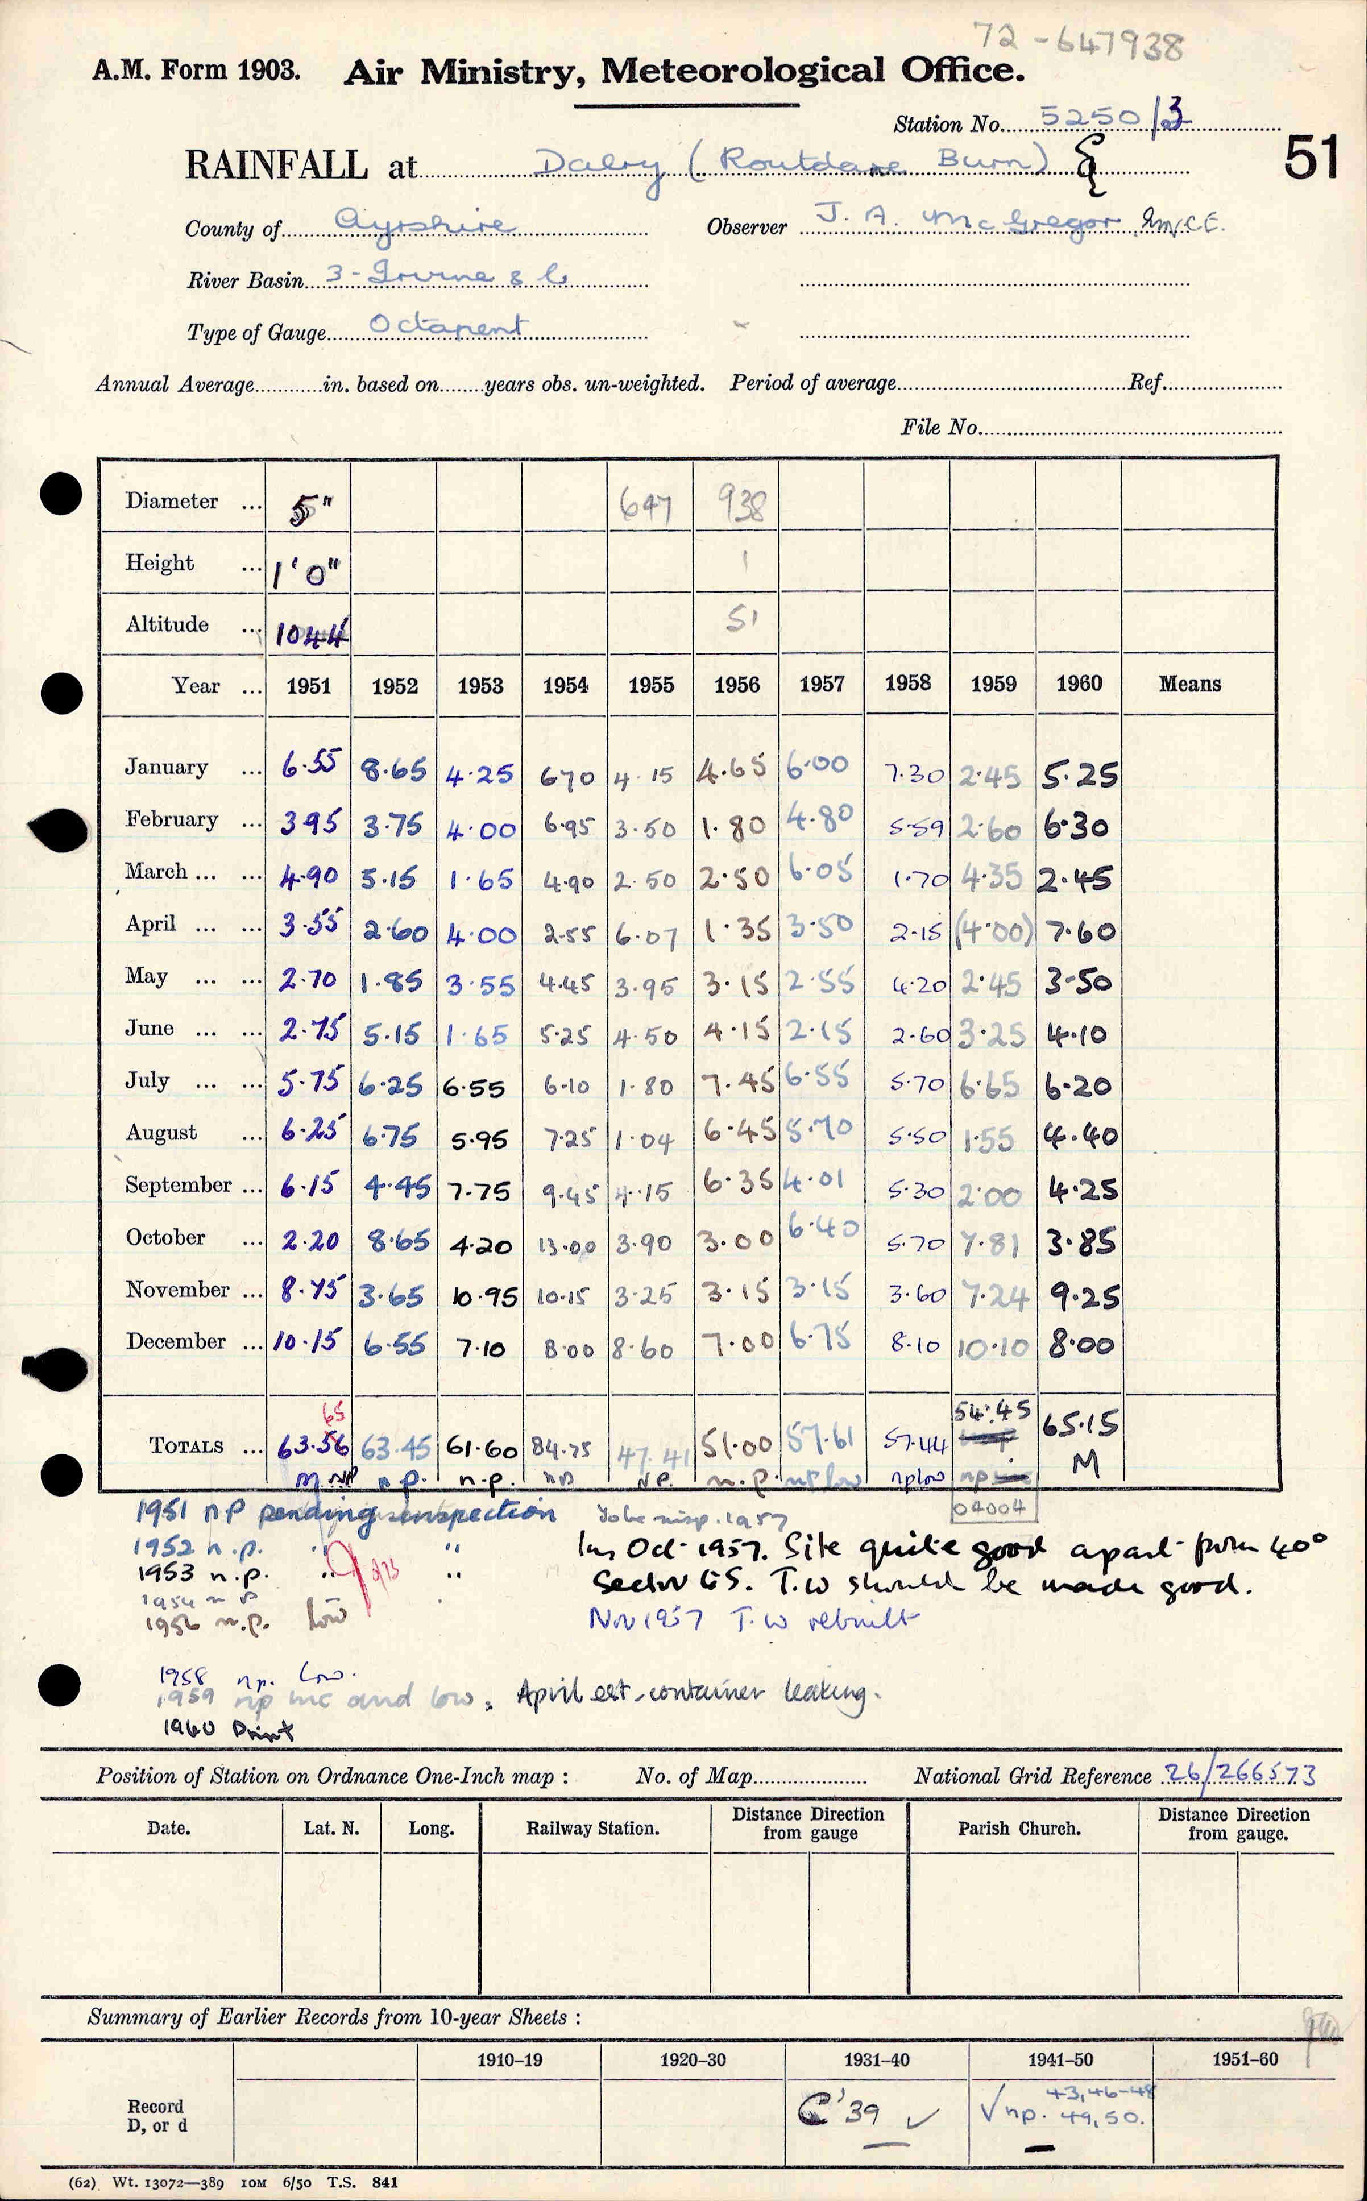 72 - 647938
A.M. Form 1903. Air Ministry, Meteorological Office.
Station No. 5250/3
RAINFALL at Dalry (Routdane Burn) 51
County of Ayrshire Observer J. A. McGregor, M.I.C.E.
River Basin 3 - Irvine & c
Type of Gauge Octapent
Annual Average in. based on years obs. un-weighted. Period of average Ref.
File No.
Diameter ... 5" 647 938
Height ... 1'0" 1
Altitude ... 1044 51
Year ... 1951 1952 1953 1954 1955 1956 1957 1958 1959 1960 Means
January ... 6.55 8.65 4.25 6.70 4.15 4.65 6.00 7.30 2.45 5.25
February ... 3.95 3.75 4.00 6.95 3.50 1.80 4.80 5.59 2.60 6.30
March ... ... 4.90 5.15 1.65 4.90 2.50 2.50 6.05 1.70 4.35 2.45
April ... ... 3.55 2.60 4.00 2.55 6.07 1.35 3.50 2.15 (4.00) 7.60
May ... ... 2.70 1.85 3.55 4.45 3.95 3.15 2.55 4.20 2.45 3.50
June ... ... 2.75 5.15 1.65 5.25 4.50 4.15 2.15 2.60 3.25 4.10
July ... ... 5.75 6.25 6.55 6.10 1.80 7.45 6.55 5.70 6.65 6.20
August ... 6.25 6.75 5.95 7.25 1.04 6.45 5.70 5.50 1.55 4.40
September ... 6.15 4.45 7.75 9.45 4.15 6.35 4.01 5.30 2.00 4.25
October ... 2.20 8.65 4.20 13.00 3.90 3.00 6.40 5.70 7.81 3.85
November ... 8.75 3.65 10.95 10.15 3.25 3.15 3.15 3.60 7.24 9.25
December ... 10.15 6.55 7.10 8.00 8.60 7.00 6.75 8.10 10.10 8.00
65 54.45
TOTALS ... 63.56 63.45 61.60 84.75 47.41 51.00 57.61 57.44 65.15
M NP n.p. n.p. np NP. n.p. np low np low np M
04004
1951 n P pending inspection To be insp. 1957
1952 n.p. " " Ins Oct 1957. Site quite good apart from 40°
1953 n.p. " " Sector ES. T.W should be made good.
1954 n P
1956 n.p. low Nov 1957 T.W rebuilt
1958 np. Low.
1959 np inc and low, April est, container leaking.
1960 Print
Position of Station on Ordnance One-Inch map : No. of Map National Grid Reference 26/266573
Date. Lat. N. Long. Railway Station. Distance Direction from gauge Parish Church. Distance Direction from gauge.
Summary of Earlier Records from 10-year Sheets :
1910–19 1920–30 1931–40 1941–50 1951–60
Record D, or d C '39 ✓ ✓ np. 43, 46-48 49, 50.
(62) Wt. 13072—389 10M 6/50 T.S. 841